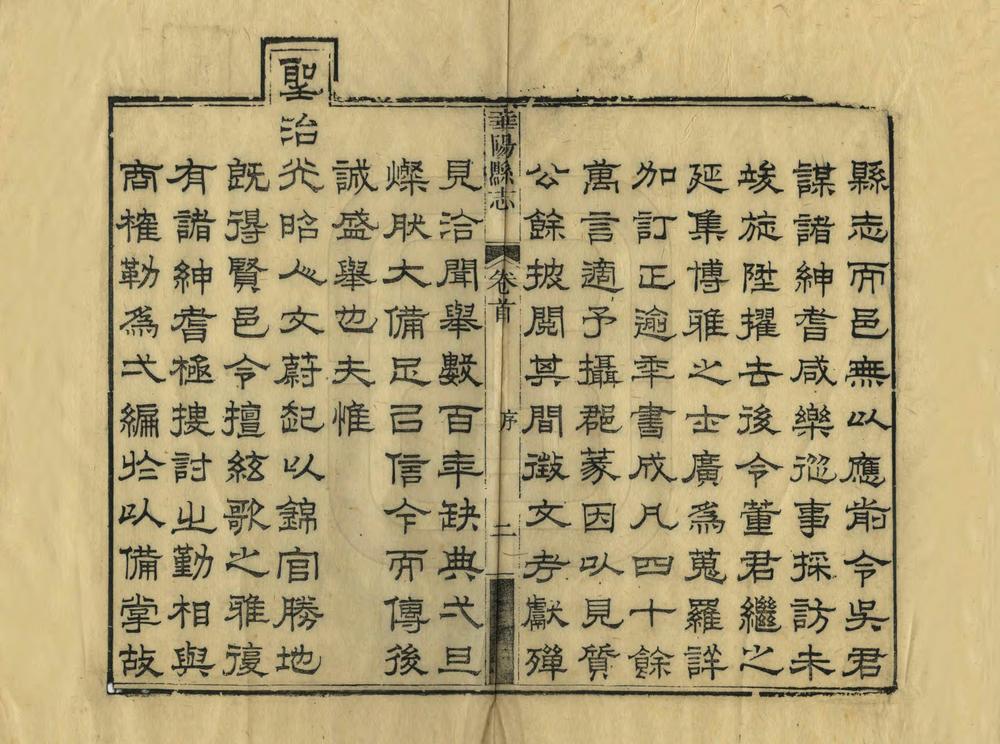 縣志而邑無以應前令吳君
謀諸紳耆咸樂從事採訪未
竣旋陞擢去後令董君繼之
延集博雅之士廣為蒐羅詳
加訂正逾年書成凡四十餘
萬言適予攝郡篆因以見質
公餘披閱其間徵文考獻殫
華陽縣志 卷首 序 二
見洽聞舉數百年缺典弌旦
燦肰大備足㠯信今而傳後
誠盛舉也夫惟
聖治光昭人文蔚起以錦官勝地
既得賢邑令擅絃歌之雅復
有諸紳耆極搜討之勤相與
商榷勒為弌編於以備掌故